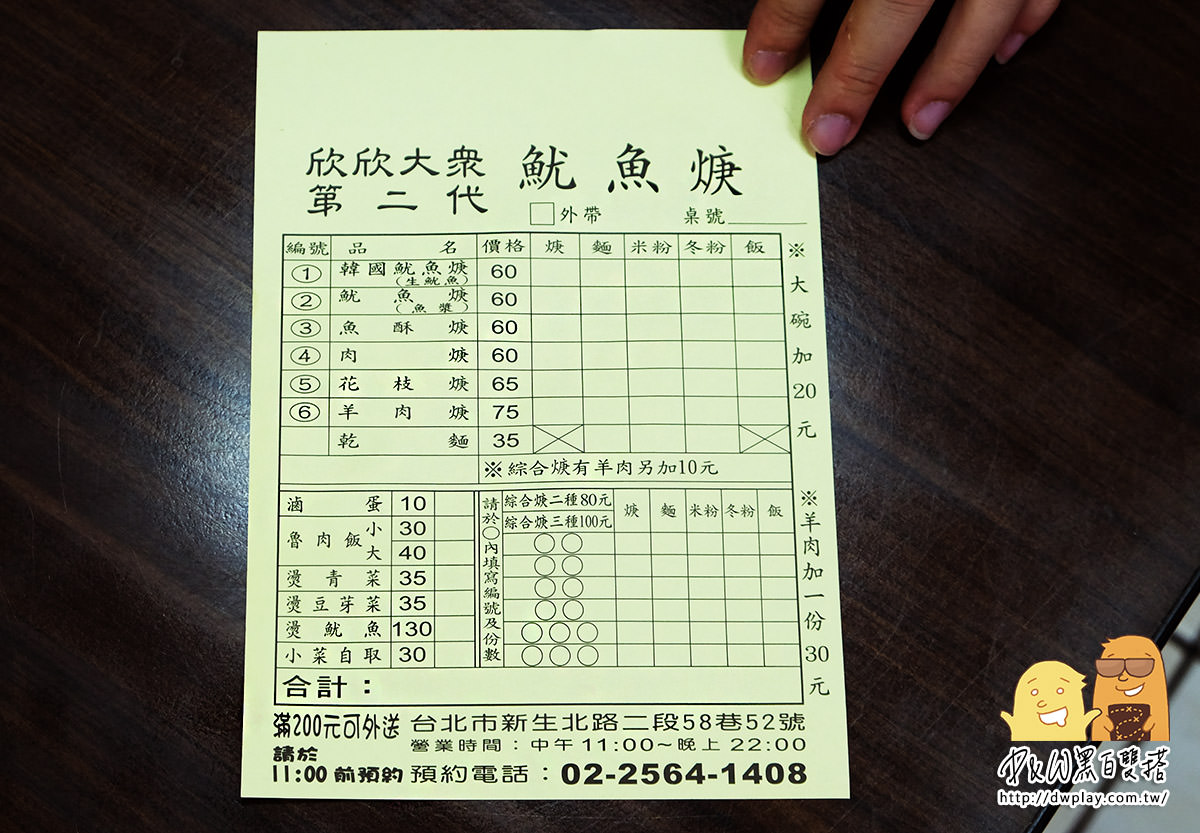 欣欣大衆 魷魚焿
第二代
□外帶 桌號
編號 品名 價格 焿 麵 米粉 冬粉 飯
① 韓國魷魚焿 60
(生魷魚)
② 魷魚焿 60
(魚漿)
③ 魚酥焿 60
④ 肉焿 60
⑤ 花枝焿 65
⑥ 羊肉焿 75
乾麵 35
※綜合焿有羊肉另加10元
※大碗加20元
滷蛋 10
魯肉飯 小 30
大 40
燙青菜 35
燙豆芽菜 35
燙魷魚 130
小菜自取 30
請於○內填寫編號及份數
綜合焿二種80元 焿 麵 米粉 冬粉 飯
綜合焿三種100元
○○
○○
○○
○○
○○○
○○○
※羊肉加一份30元
合計：
滿200元可外送 台北市新生北路二段58巷52號
請於 營業時間：中午11:00~晚上22:00
11:00前預約 預約電話：02-2564-1408
D&W黑白雙搭
http://dwplay.com.tw/